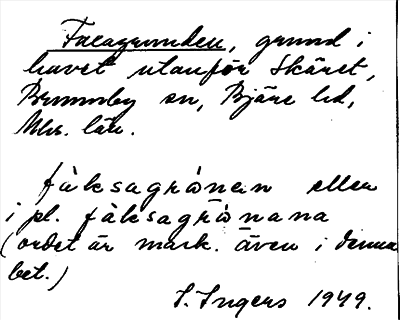 Facagrunden, grund i
havet utanför Skäret,
Brunnby sn, Bjäre hd,
Mhs. län.
fàksagrånen eller
i pl. fàksagrånana
(ordet är mask. även i denna
bet.)
I. Ingers 1949.